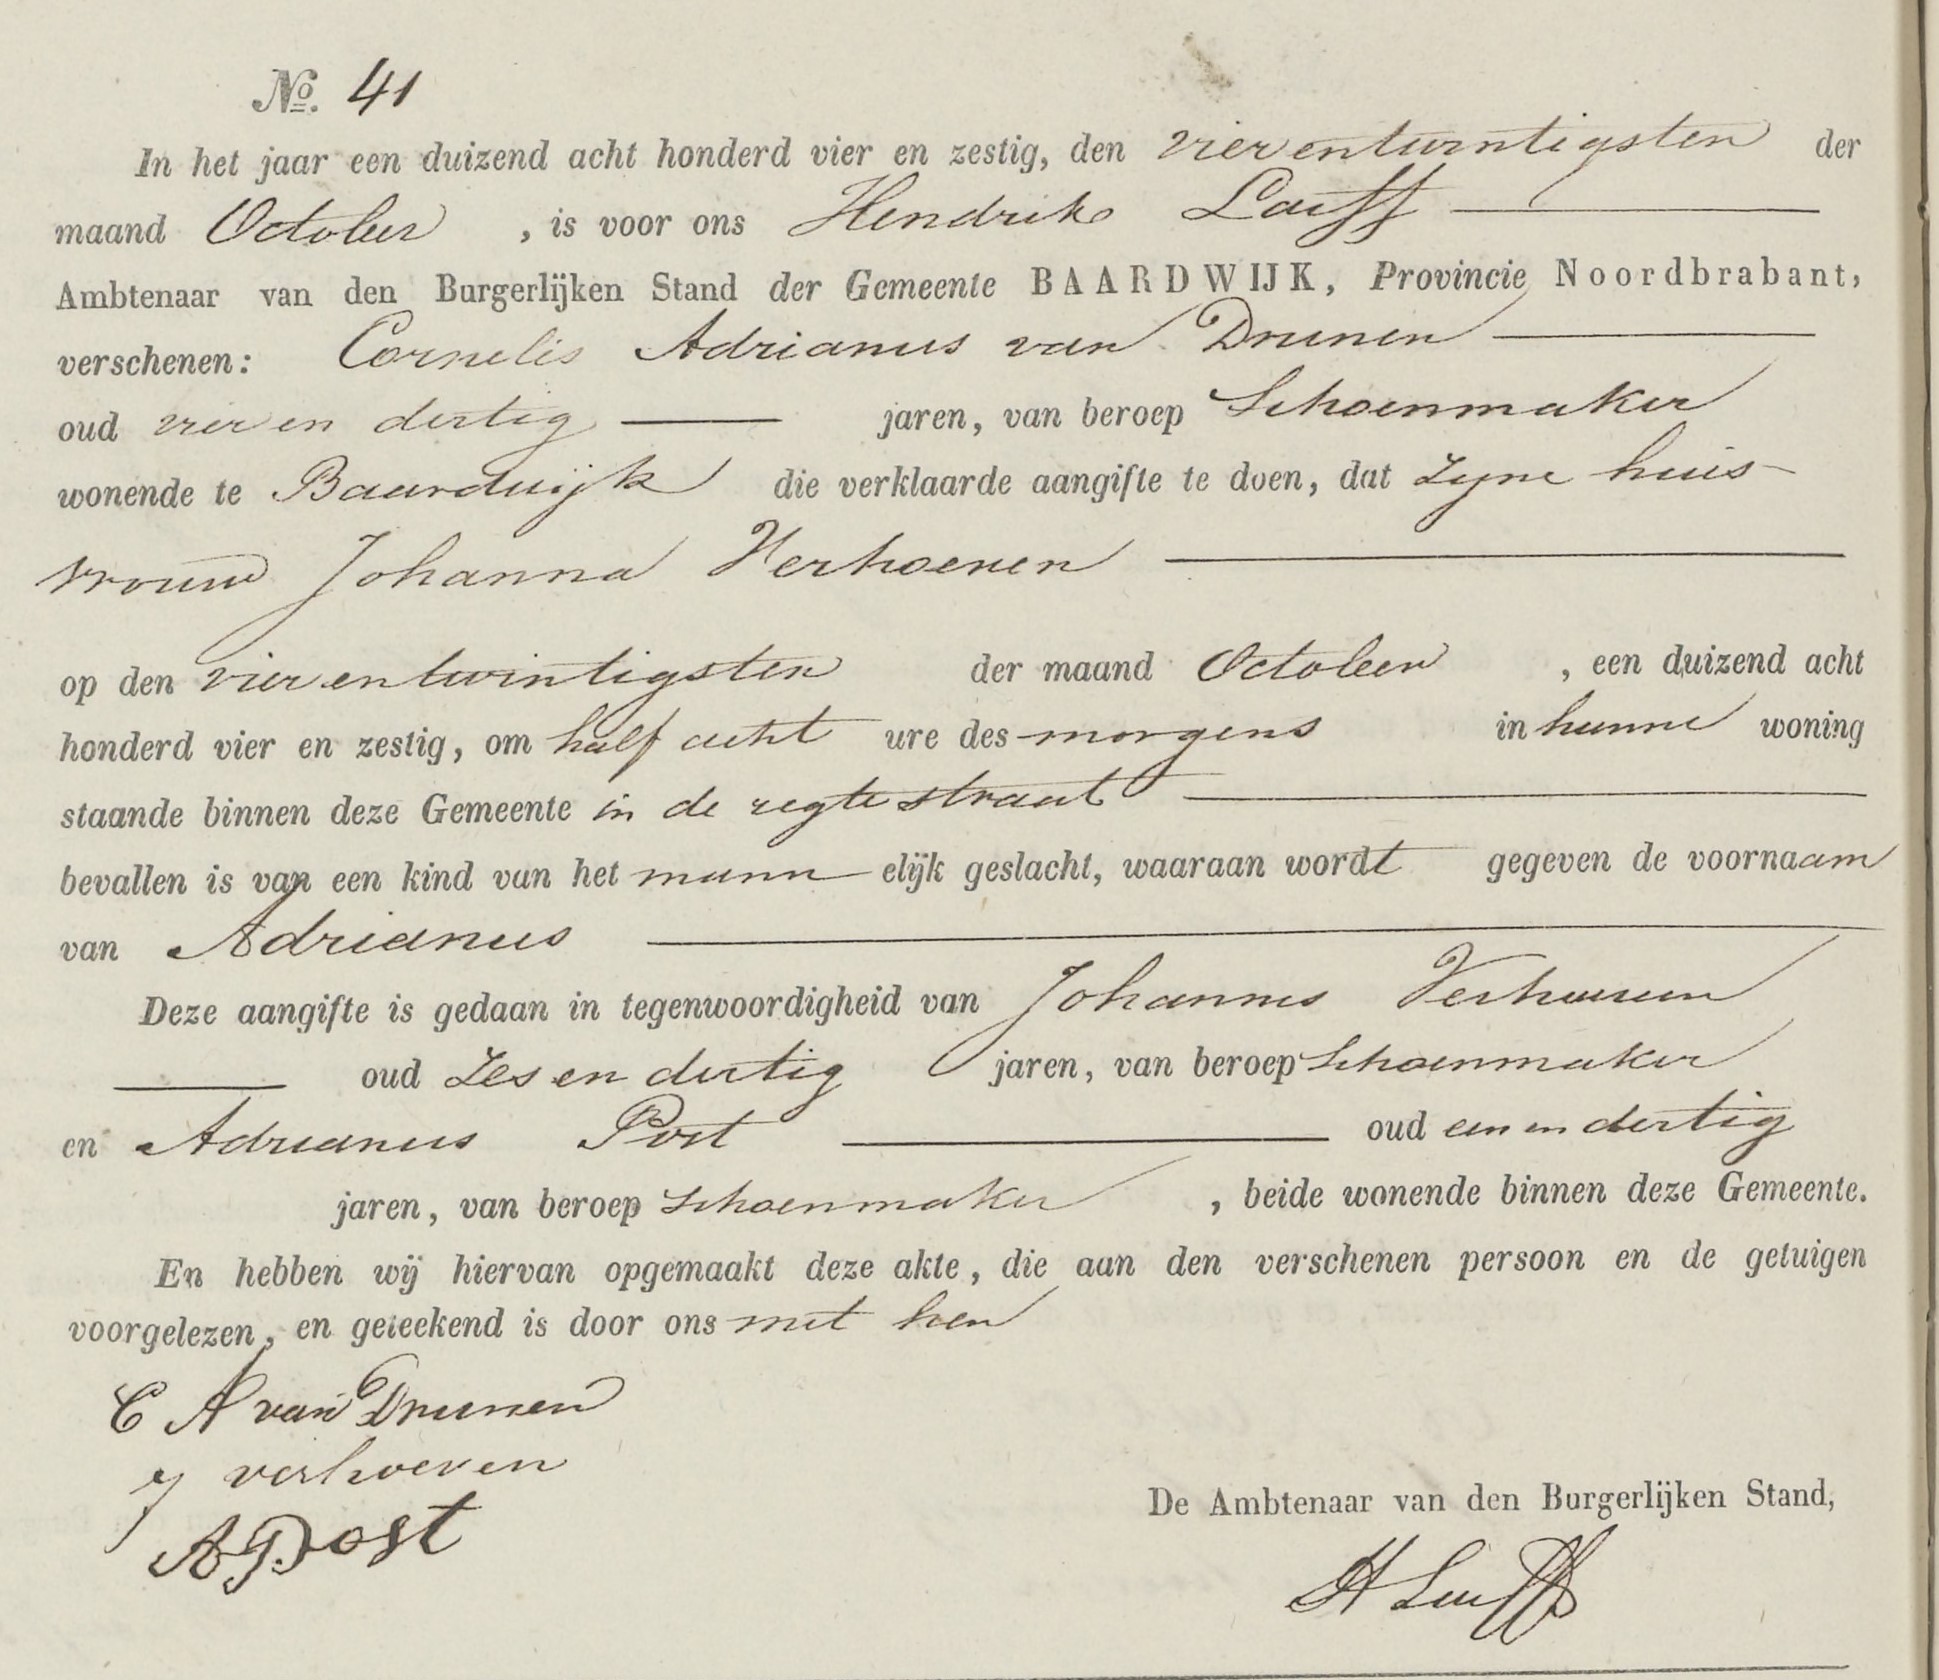 No. 41
In het jaar een duizend acht honderd vier en zestig, den vierentwintigsten der
maand October , is voor ons Hendrik
Ambtenaar van den Burgerlijken Stand der Gemeente BAARDWIJK, Provincie Noordbrabant,
verschenen: Cornelis Adrianus van Drunen
oud vier en dertig jaren, van beroep Schoenmaker
wonende te Baardwijk die verklaarde aangifte te doen, dat zyne huis-
vrouw Johanna Verhoeven
op den vierentwintigsten der maand October , een duizend acht
honderd vier en zestig, om half acht ure des morgens in hunne woning
staande binnen deze Gemeente in de regtestraat
bevallen is van een kind van het mann elijk geslacht, waaraan wordt gegeven de voornaam
van Adrianus
Deze aangifte is gedaan in tegenwoordigheid van Johannes Verhoeven
oud zes en dertig jaren, van beroep Schoenmaker
en Adrianus Post oud een en dertig
jaren, van beroep Schoenmaker , beide wonende binnen deze Gemeente.
En hebben wij hiervan opgemaakt deze akte, die aan den verschenen persoon en de getuigen
voorgelezen, en geteekend is door ons met hen
C A van Drunen
J verhoeven
A Post
De Ambtenaar van den Burgerlijken Stand,
H